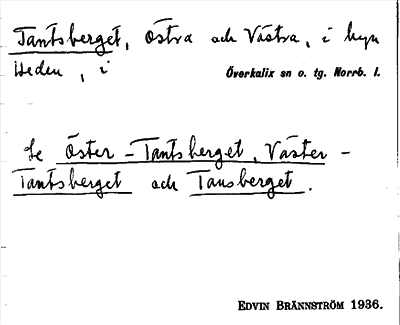 Tantsberget, Östra och Västra, i byn
Heden, i Överkalix sn o. tg. Norrb. l.
Se Öster-Tantsberget, Väster-
Tantsberget och Tansberget.
EDVIN BRÄNNSTRÖM 1936.